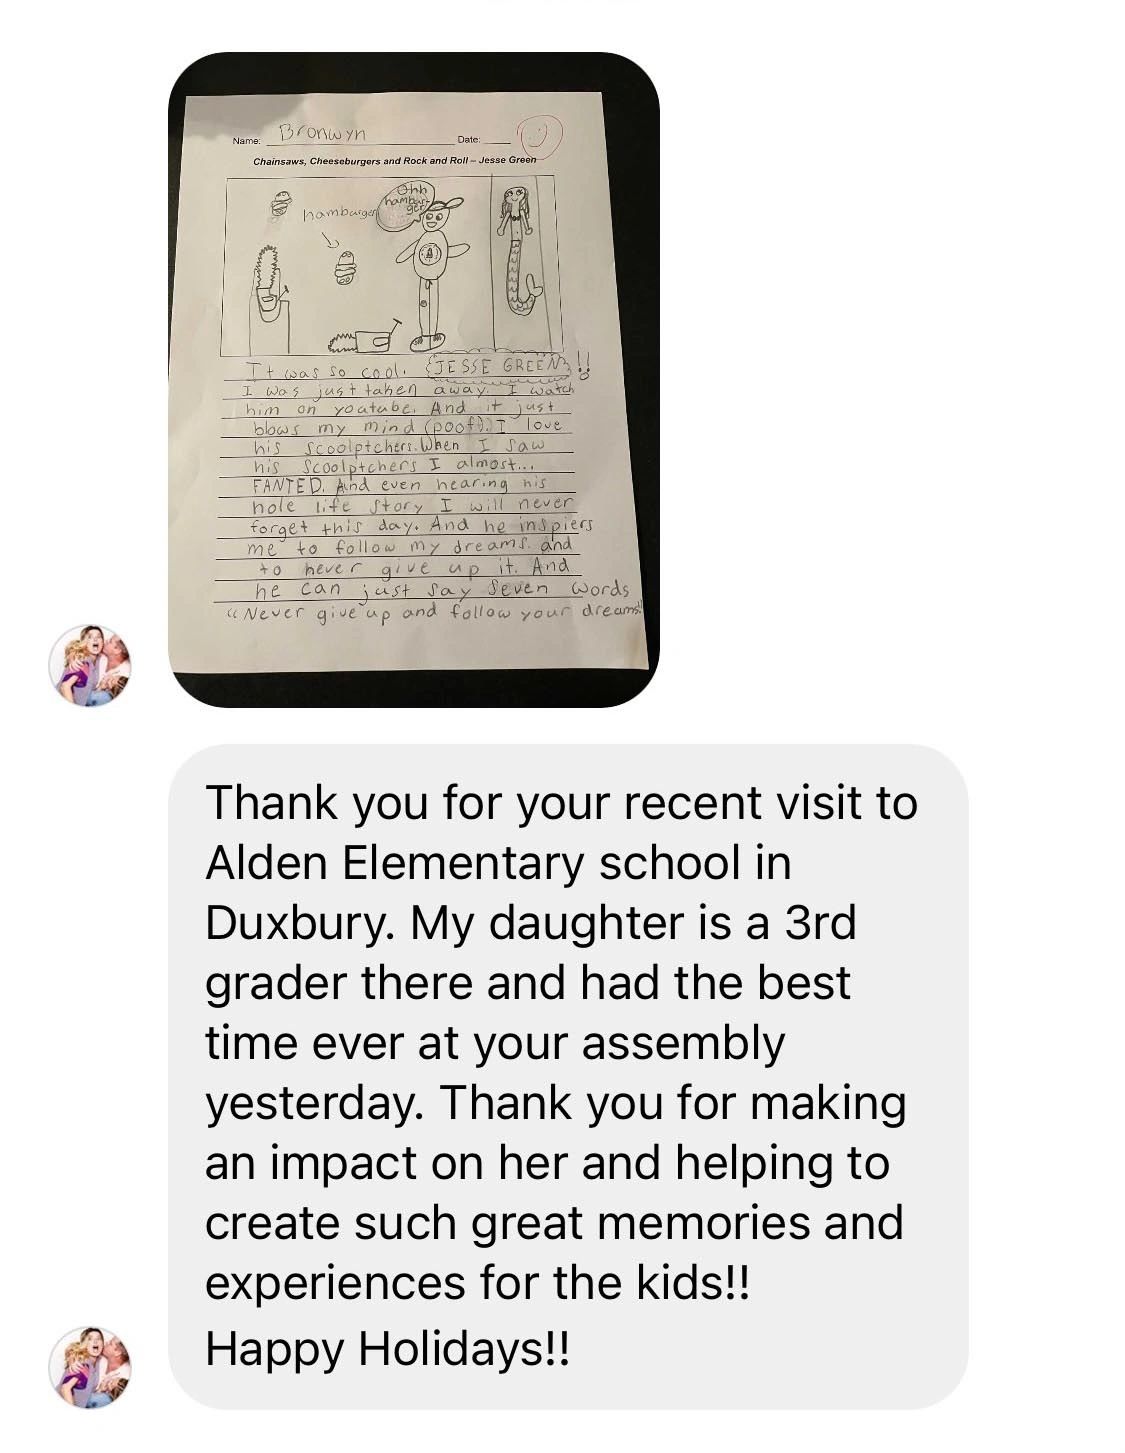 Name: Bronwyn Date:
Chainsaws, Cheeseburgers and Rock and Roll – Jesse Green
Ohh
hambur-
ger
hamburger
It was so cool. JESSE GREEN!!
I was just taken away. I watch
him on youtube. And it just
blows my mind (poof). I love
his scoolptchers. When I saw
his scoolptchers I almost...
FANTED. And even hearing his
hole life story I will never
forget this day. And he inspiers
me to follow my dreams. and
to never give up it. And
he can just say seven words
“Never give up and follow your dreams!”
Thank you for your recent visit to
Alden Elementary school in
Duxbury. My daughter is a 3rd
grader there and had the best
time ever at your assembly
yesterday. Thank you for making
an impact on her and helping to
create such great memories and
experiences for the kids!!
Happy Holidays!!